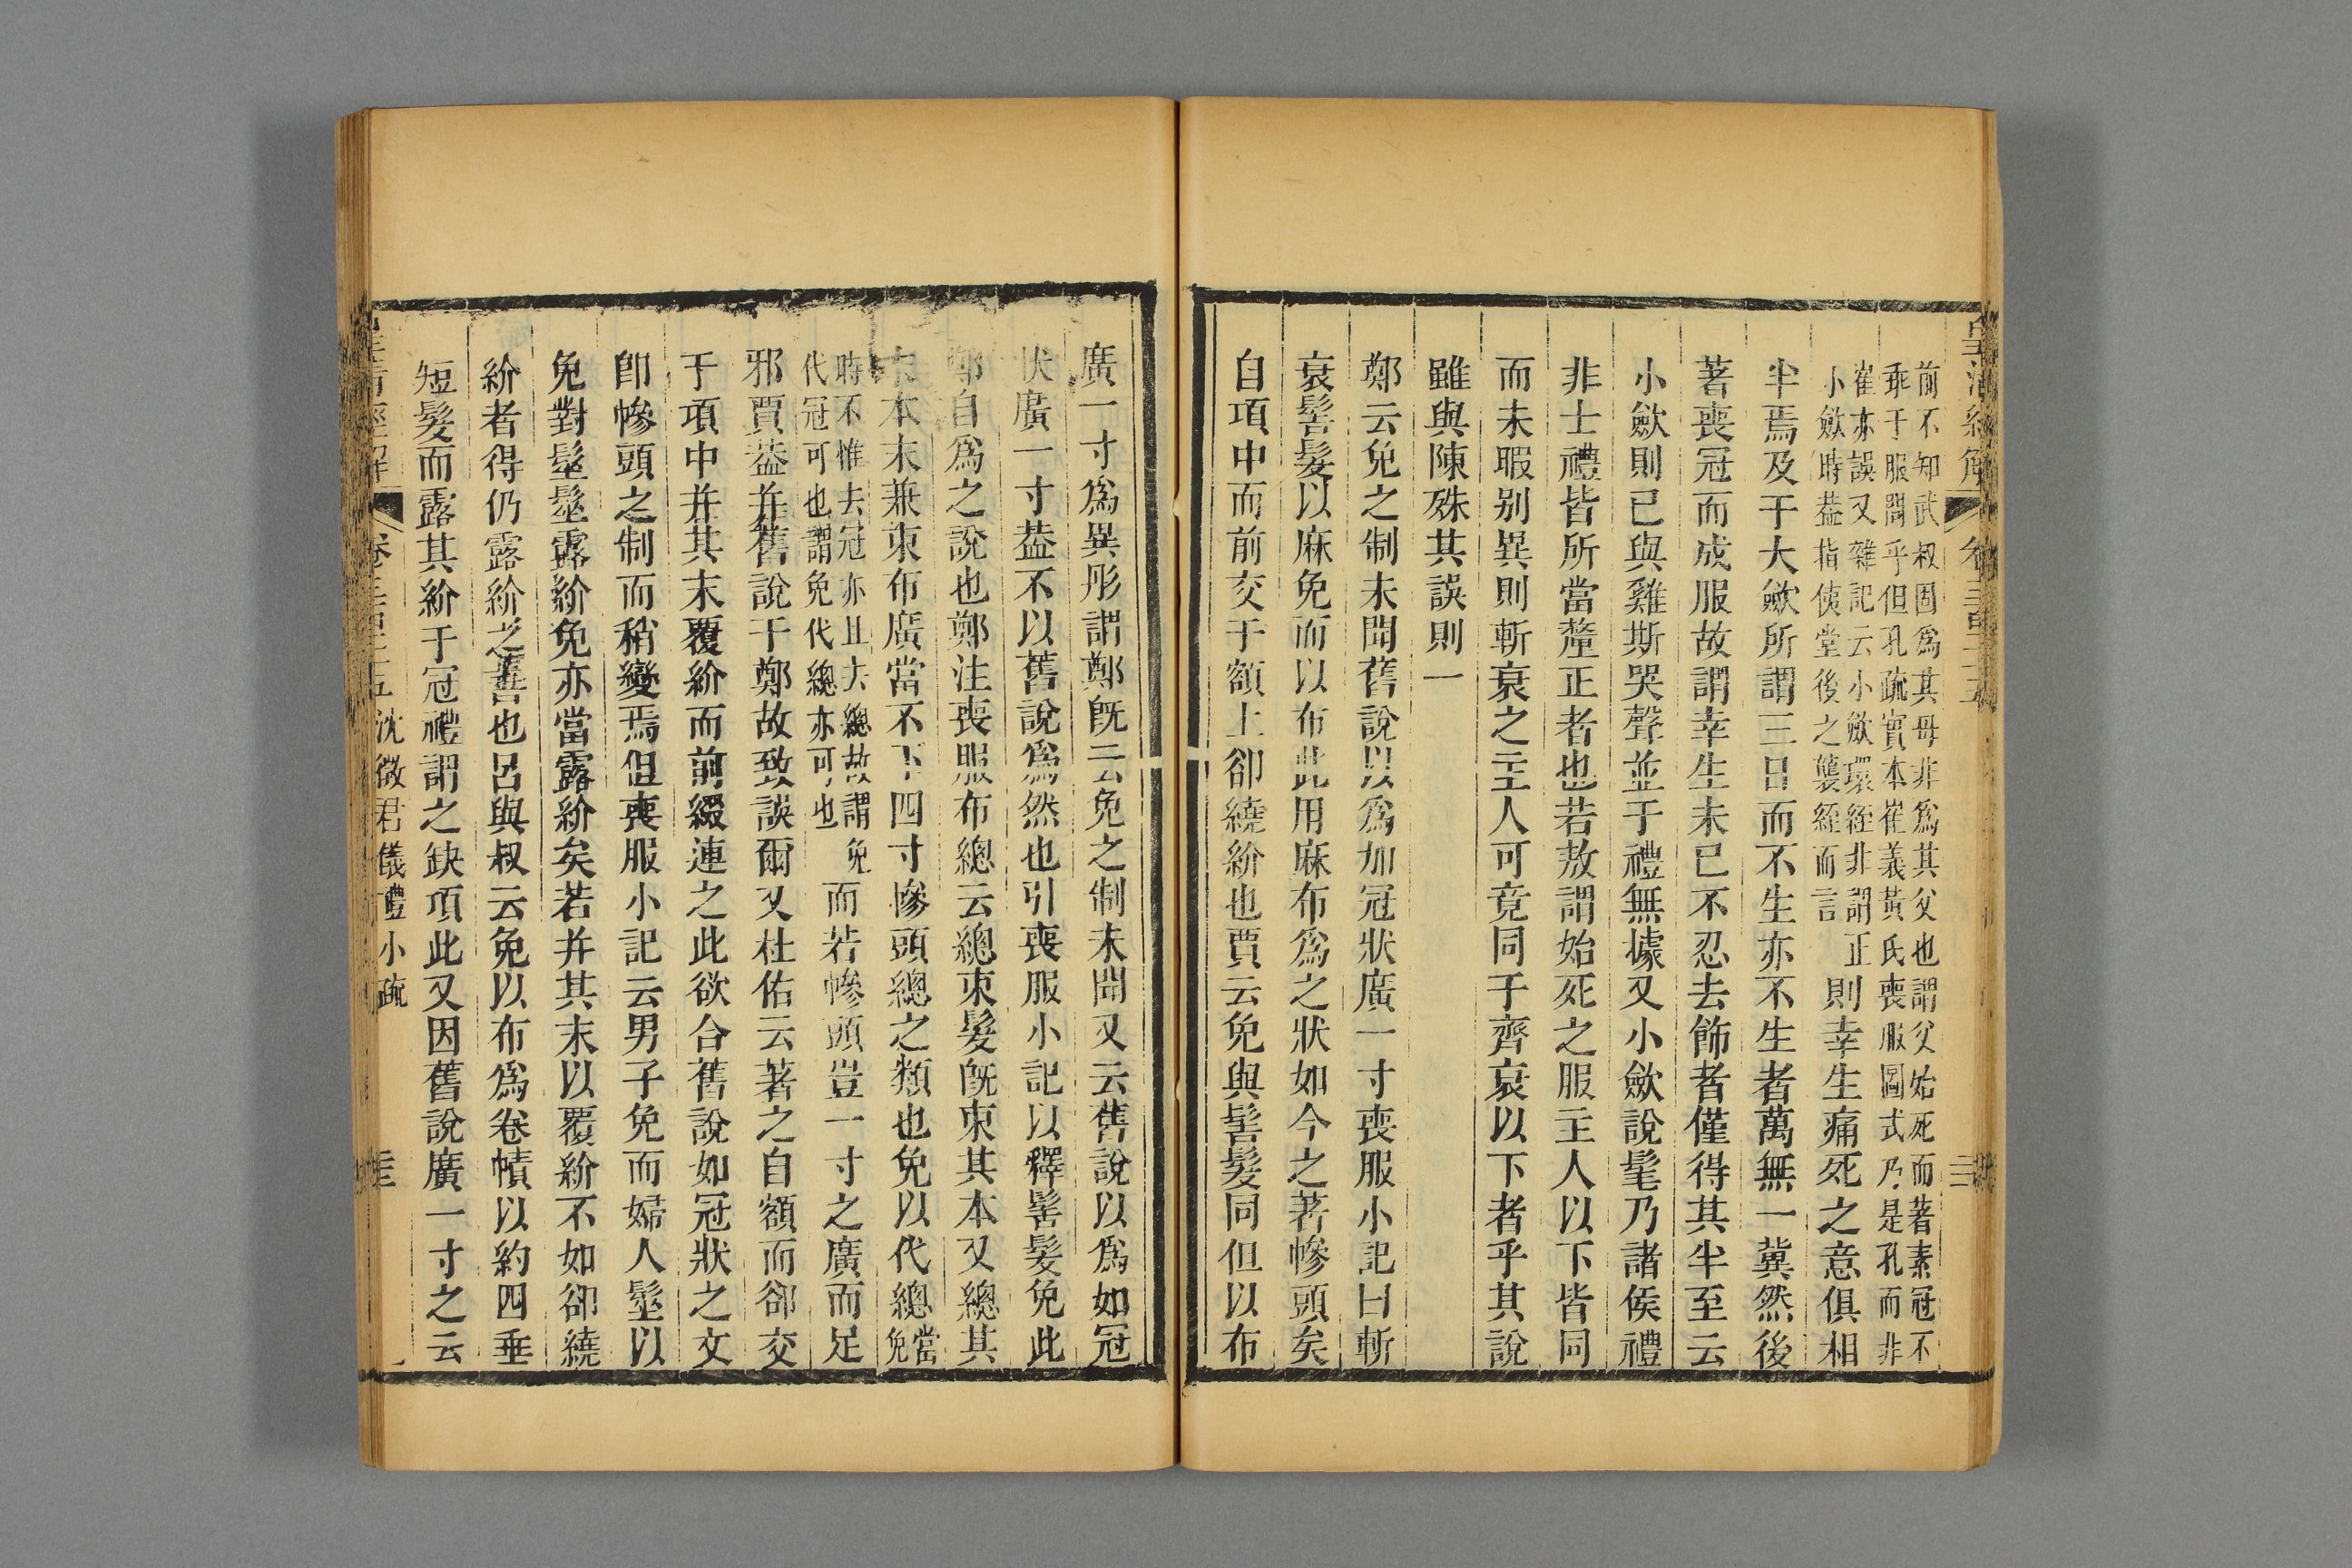 前不知武叔固爲其母非爲其父也謂父始死而著素冠不
乖于服問乎但孔疏實本崔義黃氏喪服圖式乃是孔而非
崔亦誤又雜記云小斂環絰非謂正
小斂時葢指侠堂後之襲絰而言
則幸生痛死之意俱相
半焉及于大斂所謂三日而不生亦不生者萬無一冀然後
著喪冠而成服故謂幸生未已不忍去飾者僅得其半至云
小斂則已與雞斯哭聲並于禮無據又小斂說髦乃諸侯禮
非士禮皆所當釐正者也若敖謂始死之服主人以下皆同
而未暇别異則斬衰之主人可竟同于齊衰以下者乎其說
雖與陳殊其誤則一
鄭云免之制未聞舊說以爲加冠狀廣一寸喪服小記曰斬
衰髺髮以麻免而以布此用麻布爲之狀如今之著幓頭矣
自項中而前交于額上卻繞紒也賈云免與髺髮同但以布
廣一寸爲異彤謂鄭旣云免之制未聞又云舊說以爲如冠
狀廣一寸葢不以舊說爲然也引喪服小記以釋髺髮免此
鄭自爲之說也鄭注喪服布總云總束髮旣束其本又總其
末本末兼束布廣當不下四寸幓頭總之類也免以代總
當免
時不惟去冠亦且去總故謂免
代冠可也謂免代總亦可也
而若幓頭豈一寸之廣而足
邪賈葢并舊說于鄭故致誤爾又杜佑云著之自額而卻交
于項中并其末覆紒而前綴連之此欲合舊說如冠狀之文
卽幓頭之制而稍變焉但喪服小記云男子免而婦人髽以
免對髽髽露紒免亦當露紒矣若并其末以覆紒不如卻繞
紒者得仍露紒之善也呂與叔云免以布爲卷幘以約四垂
短髮而露其紒于冠禮謂之缺項此又因舊說廣一寸之云
沈徵君儀禮小疏